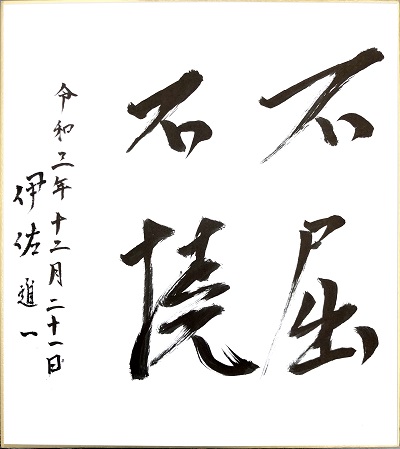 不屈
不撓
令和三年十二月二十一日
伊佐進一